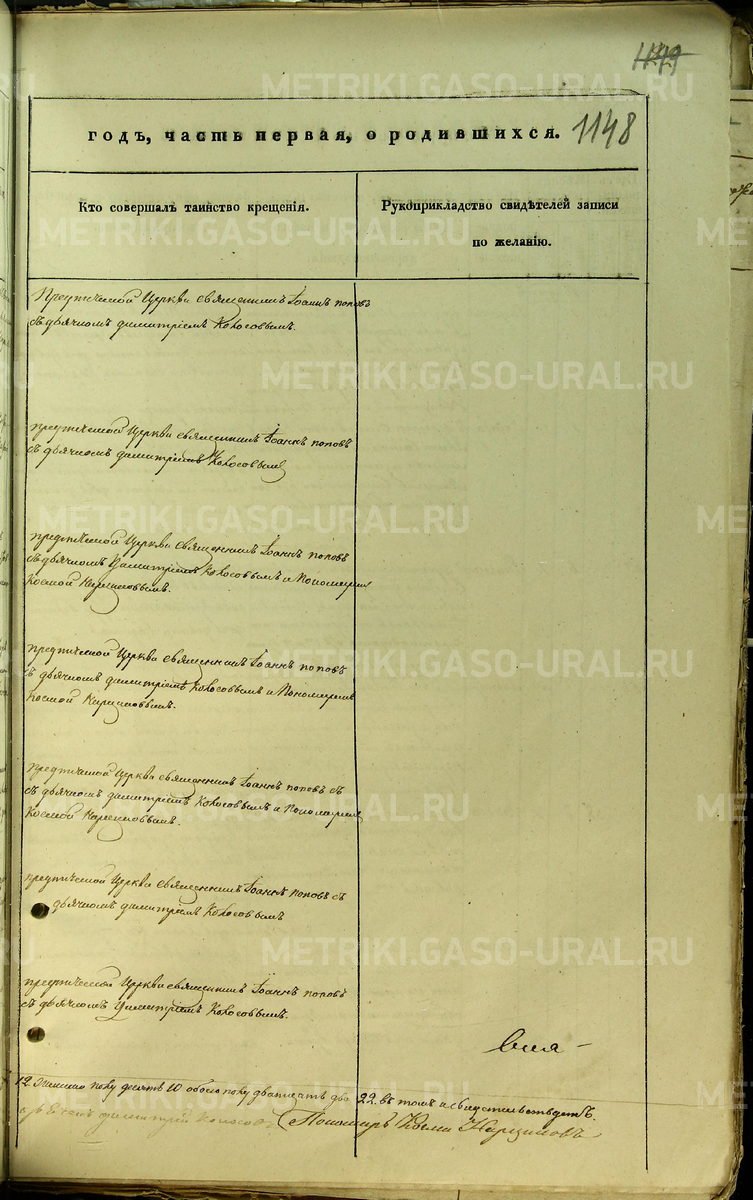 1149
1148
годъ, часть первая, о родившихся.
Кто совершалъ таинство крещенія.
Рукоприкладство свидѣтелей записи
по желанію.
Предтечевой Церкви священникъ Іоаннъ поповъ
съ дьячкомъ димитріемъ Колосовымъ.
предтечевой Церкви священникъ Іоаннъ поповъ
съ дьячкомъ димитріемъ Колосовымъ
предтечевой Церкви священникъ Іоаннъ поповъ
съ дьячкомъ Димитріемъ Колосовымъ и Пономаремъ
Космой
предтечевой Церкви священникъ Іоаннъ поповъ
съ дьячкомъ димитріемъ Колосовымъ и Пономаремъ
Космой
предтечевой Церкви священникъ Іоаннъ поповъ съ
съ дьячкомъ димитріемъ Колосовымъ и Пономаремъ
Космой
предтечевой Церкви священникъ Іоаннъ поповъ съ
дьячкомъ димитріемъ Колосовымъ
предтечевой Церкви священникъ Іоаннъ поповъ
съ дьячкомъ Димитріемъ Колосовымъ.
12. женска полу десять 10 обоего полу двадцать два 22. въ томъ и свидетельствуетъ.
димитрій Колосовъ Пономарь Косма
METRIKI.GASO-URAL.RU